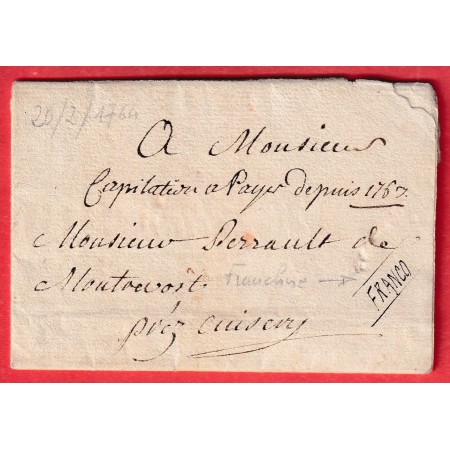 20/2/1764
A Monsieur
Capitation a Payer depuis 1763.
Monsieur Perrault de
Montrevost
Franchise
FRANCO
préz Cuisery